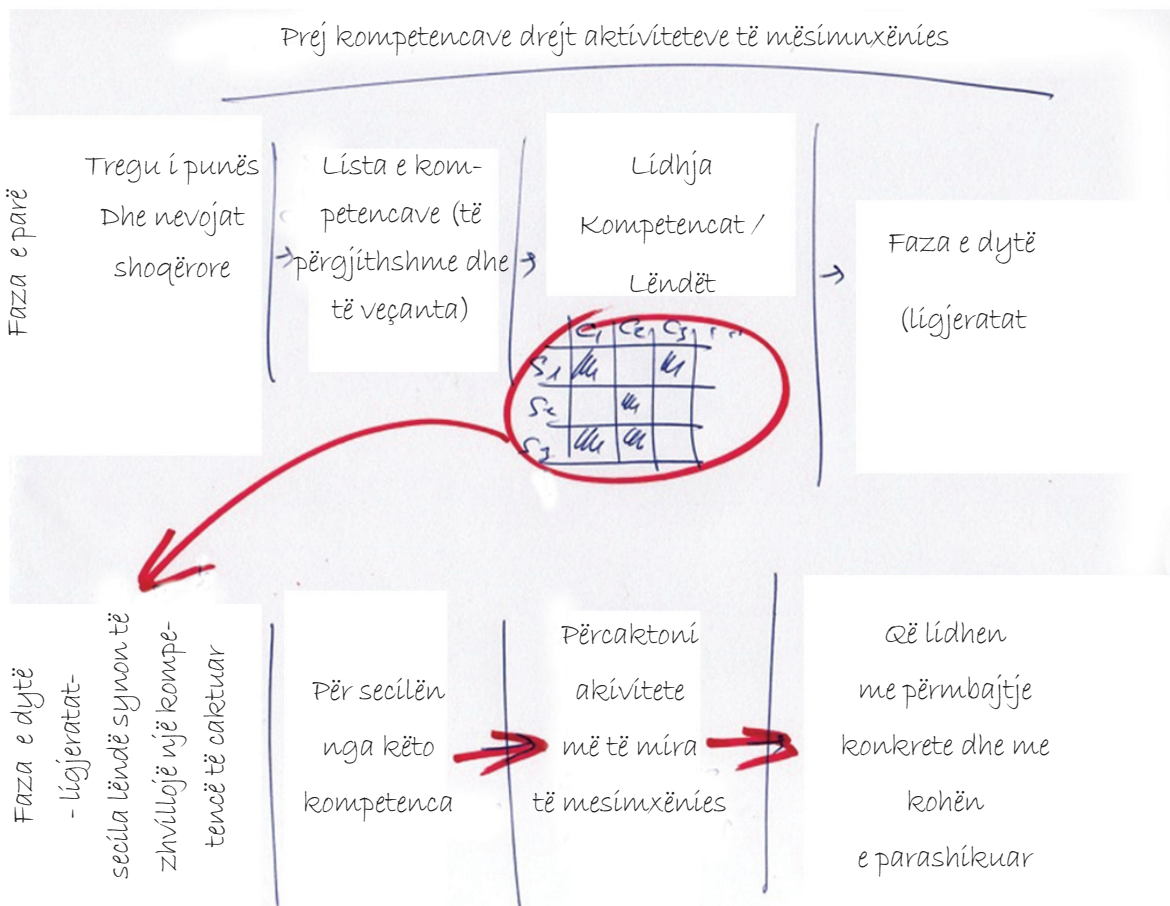 Prej kompetencave drejt aktiviteteve të mësimnxënies
Faza e parë
Tregu i punës
Dhe nevojat
shoqërore
Lista e kom-
petencave (të
përgjithshme dhe
të veçanta)
Lidhja
Kompetencat /
Lëndët
C1 C2 C3 ...
S1
S2
S3
Faza e dytë
(ligjeratat
Faza e dytë
- ligjeratat-
secila lëndë synon të
zhvillojë një kompe-
tencë të caktuar
Për secilën
nga këto
kompetenca
Përcaktoni
akivitete
më të mira
të mesimxënies
Që lidhen
me përmbajtje
konkrete dhe me
kohën
e parashikuar